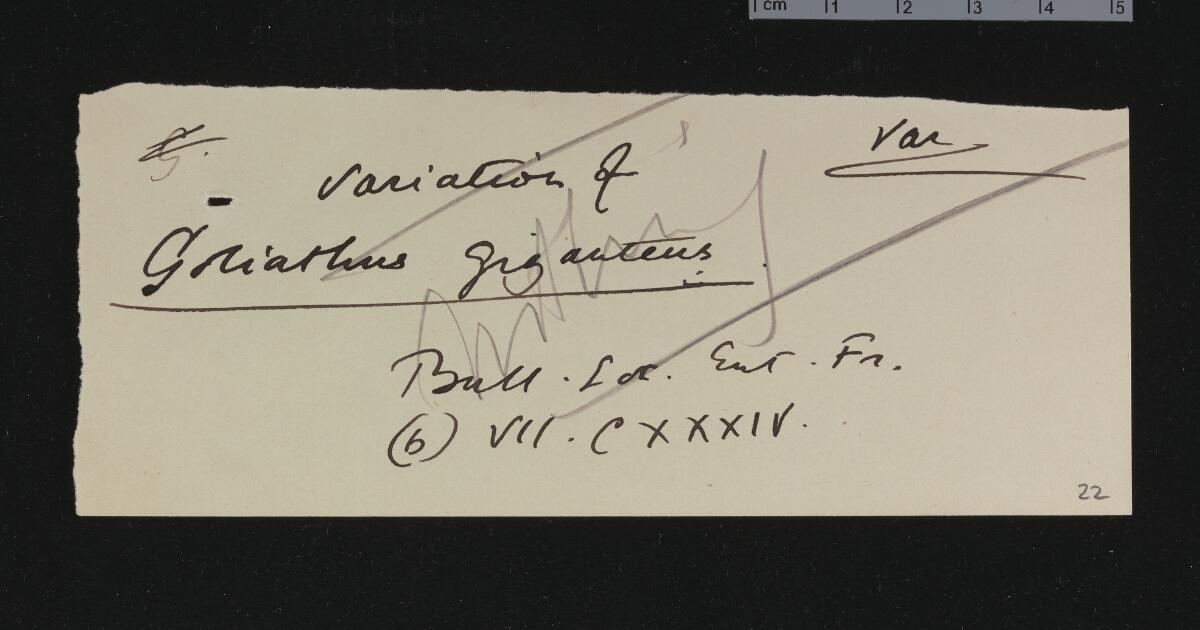 cm 1 2 3 4 5
Var
Variation of
Goliathus giganteus
Bull. Soc. Ent. Fr.
(6) VII. CXXXIV.
22